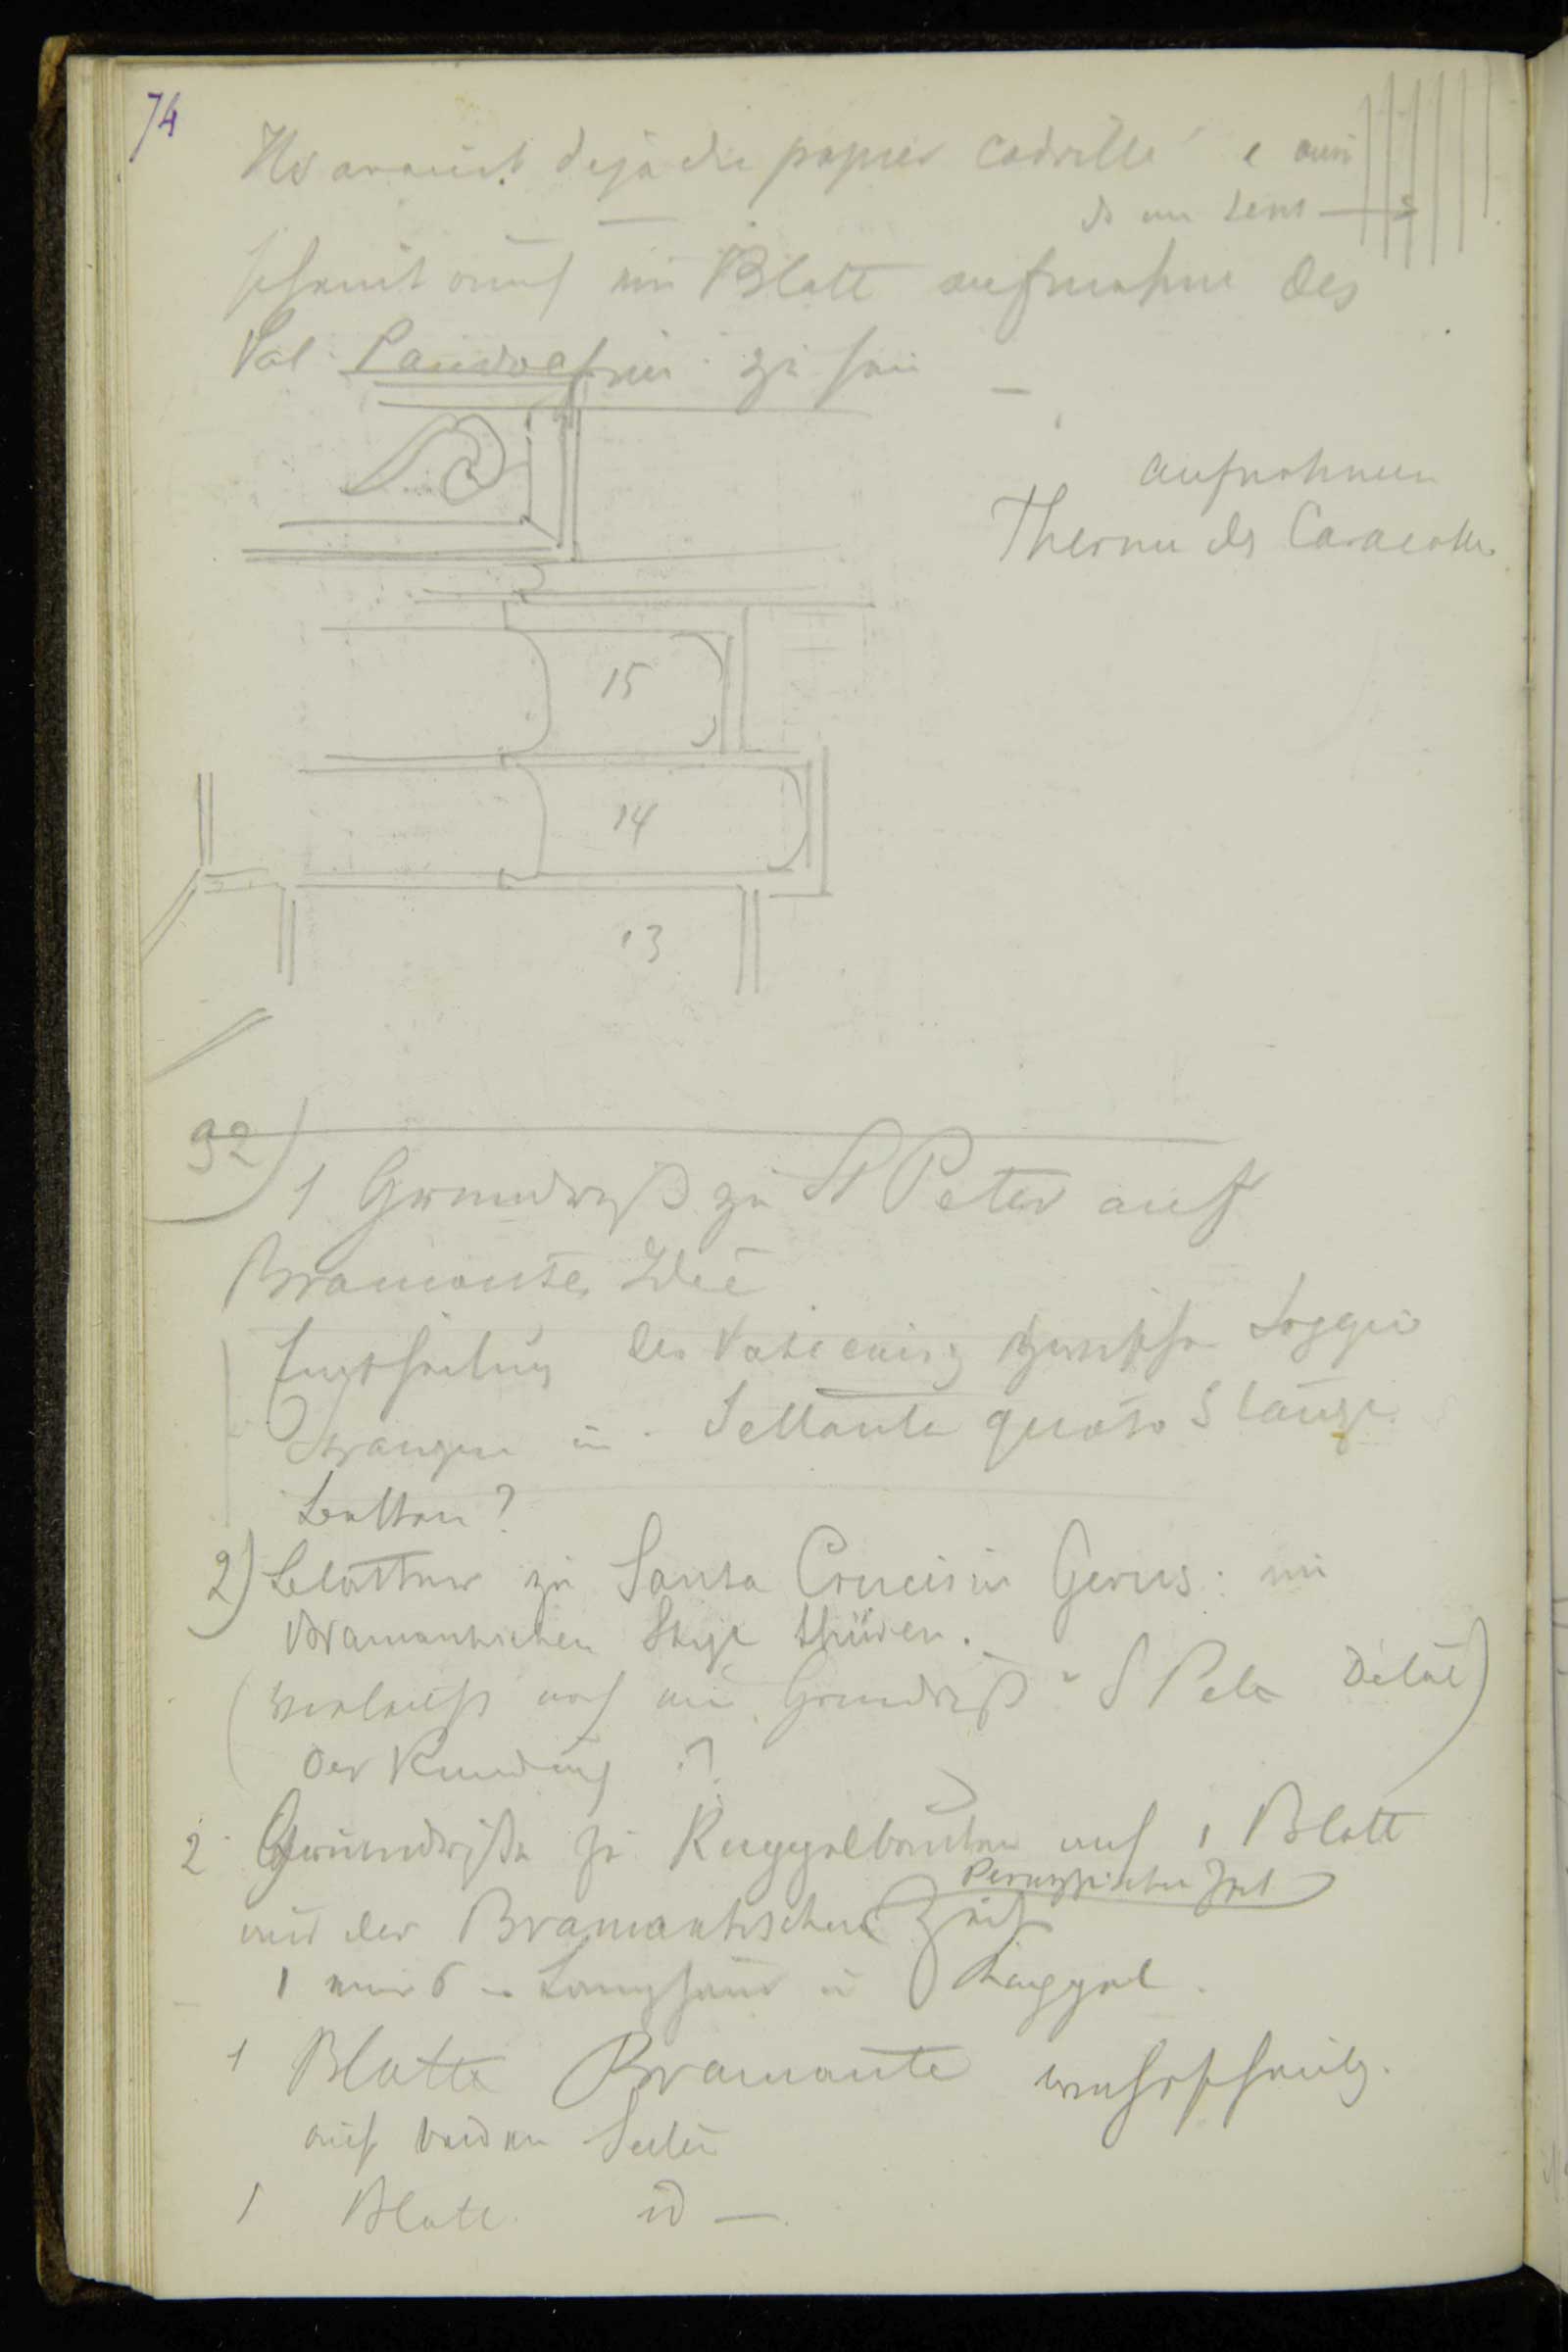 74
Ils avaient deja du papier cadrillé e aussi
ds un sens
scheint auch ein Blatt aufnahme des
Pal. Pandolfini zu sein
aufnahmen
Therme des Caracalla
15
14
13
92) 1 Grundriß zu St Peter auf
Bramantes Idee
des Vaticanis zwischen Loggie
Settante quatro
2) Blätter zu Santa Croce in Gerus: im
Bramantischen Style thüren.
(vielleicht noch ein Grundriß S Peter Detail)
der Rundung ?
2 Grundriße zu Kuppelbauten auf 1 Blatt
Peruzzischen Zeit
aus der Bramantischen Zeit
1 mit Langhaus u Kuppel.
1 Blatte Bramante wahrscheinlich.
auf beiden Seiten
1 Blatt id —